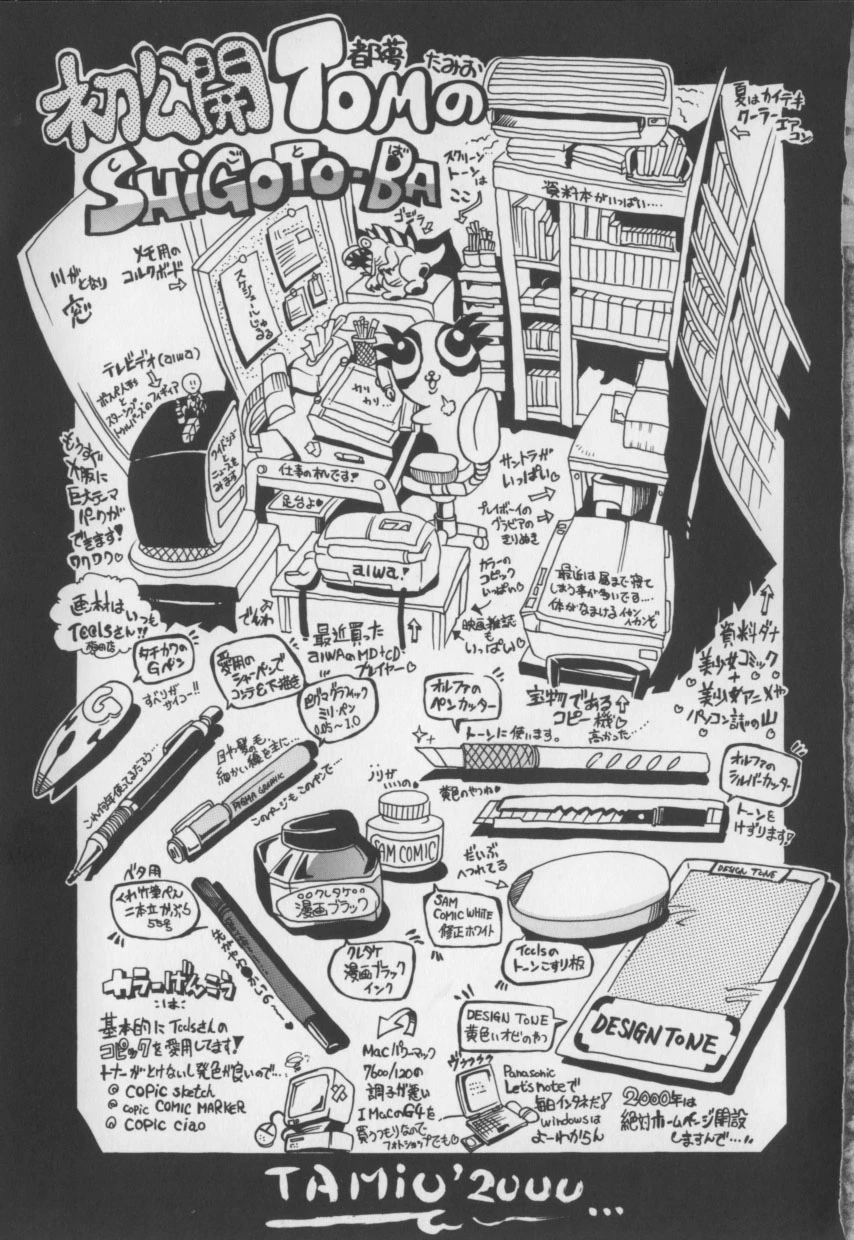 初公開 TOMの
都夢 たみお
SHiGOTO-BA
しごとば
夏はカイテキ
クーラーエア
コン
スクリーン
トーンは
ここ
ゴジラ
資料本がいっぱい…
メモ用の
コルクボード
川がとなり
窓
スケジュールじゅるる
テレビデオ(aiwa)
カリ
カリ…
もうすぐ
大阪に
巨大テーマ
パークが
できます!
ワクワク♡
仕事の机です!
足台よ♡
サントラが
いっぱい♡
プレイボーイの
グラビアの
きりぬき
カラーの
コピック
いっぱい♡
映画雑誌
も
いっぱい♡
aiwa!
最近は昼まで寝て
しまう事が多いです…
体がなまけるイカン
イカンぞ
最近買った
aiwaのMD+CD
プレイヤー♡
宝物である
コピー機♡
高かった……
資料ダナ
美少女コミック
+
美少女アニメや
パソコン誌の山
画材は
いつも
Toolsさん!!
でもね
タチカワの
Gペン
すべりが
サイコー!!
愛用の
シャーペンズ
コンテ&下描き
ピグマグラフィック
ミリ・ペン
0.05~1.0
目や髪の毛
細かい線を主に…
PIGMA GRAPHIC
このページもこのペンで…
これ何年使ってるだろう…
オルファの
ペンカッター
トーンに使います。
オルファの
シルバーカッター
黄色のやつね♡
トーンを
けずります!
ノリが
いいの♡
SAM COMIC
クレタケ
漫画ブラック
SAM
COMIC WHITE
修正ホワイト
クレタケ
漫画ブラック
インク
だいぶ
へってる
Toolsの
トーンこすり板
ベタ用
くれ竹筆ぺん
二本立かぶら
55号
DESIGN TONE
DESIGN TONE
DESIGN TONE
黄色いオビのやつ
カラーげんこう
は:
基本的にToolsさんの
コピックを愛用してます!
トナーがとけないし発色が良いので…
@ COPic sketch
@ copic COMIC MARKER
@ COPIC ciao
Macパワーマック
7600/120の
調子が悪い
IMacかG4を
買うつもりなので
フォトショップでも♡
ヴゥゥゥゥ
Panasonic
Let's noteで
毎日インタネだ!
windowsは
よーわからん
2000年は
絶対ホームページ開設
しますんで…
TAMiO'2000...